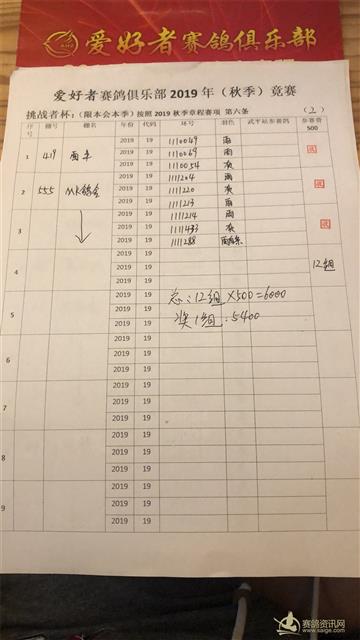 爱好者赛鸽俱乐部
爱好者赛鸽俱乐部 2019 年（秋季）竞赛
挑战者杯：（限本会本季）按照 2019 秋季章程赛项 第六条 （2）
序号 棚号 棚名 年份 代码 环号 羽色 武平站参赛鸽 参赛费 500
2019 19 1110049 雨
1 419 2019 19 1110069 雨
2019 19 1110054 灰
2019 19 1111204 雨
2 555 2019 19 111220 灰
2019 19 1111213 雨
2019 19 1111214 雨
3 2019 19 1111433 灰
2019 19 1111288
2019 19
4 2019 19 12组
2019 19
2019 19 总：12组×500=6000
5 2019 19 奖1组：5400
2019 19
2019 19
6 2019 19
2019 19
2019 19
7 2019 19
2019 19
2019 19
8 2019 19
2019 19
2019 19
9 2019 19
2019 19
赛鸽资讯网
www.saige.com